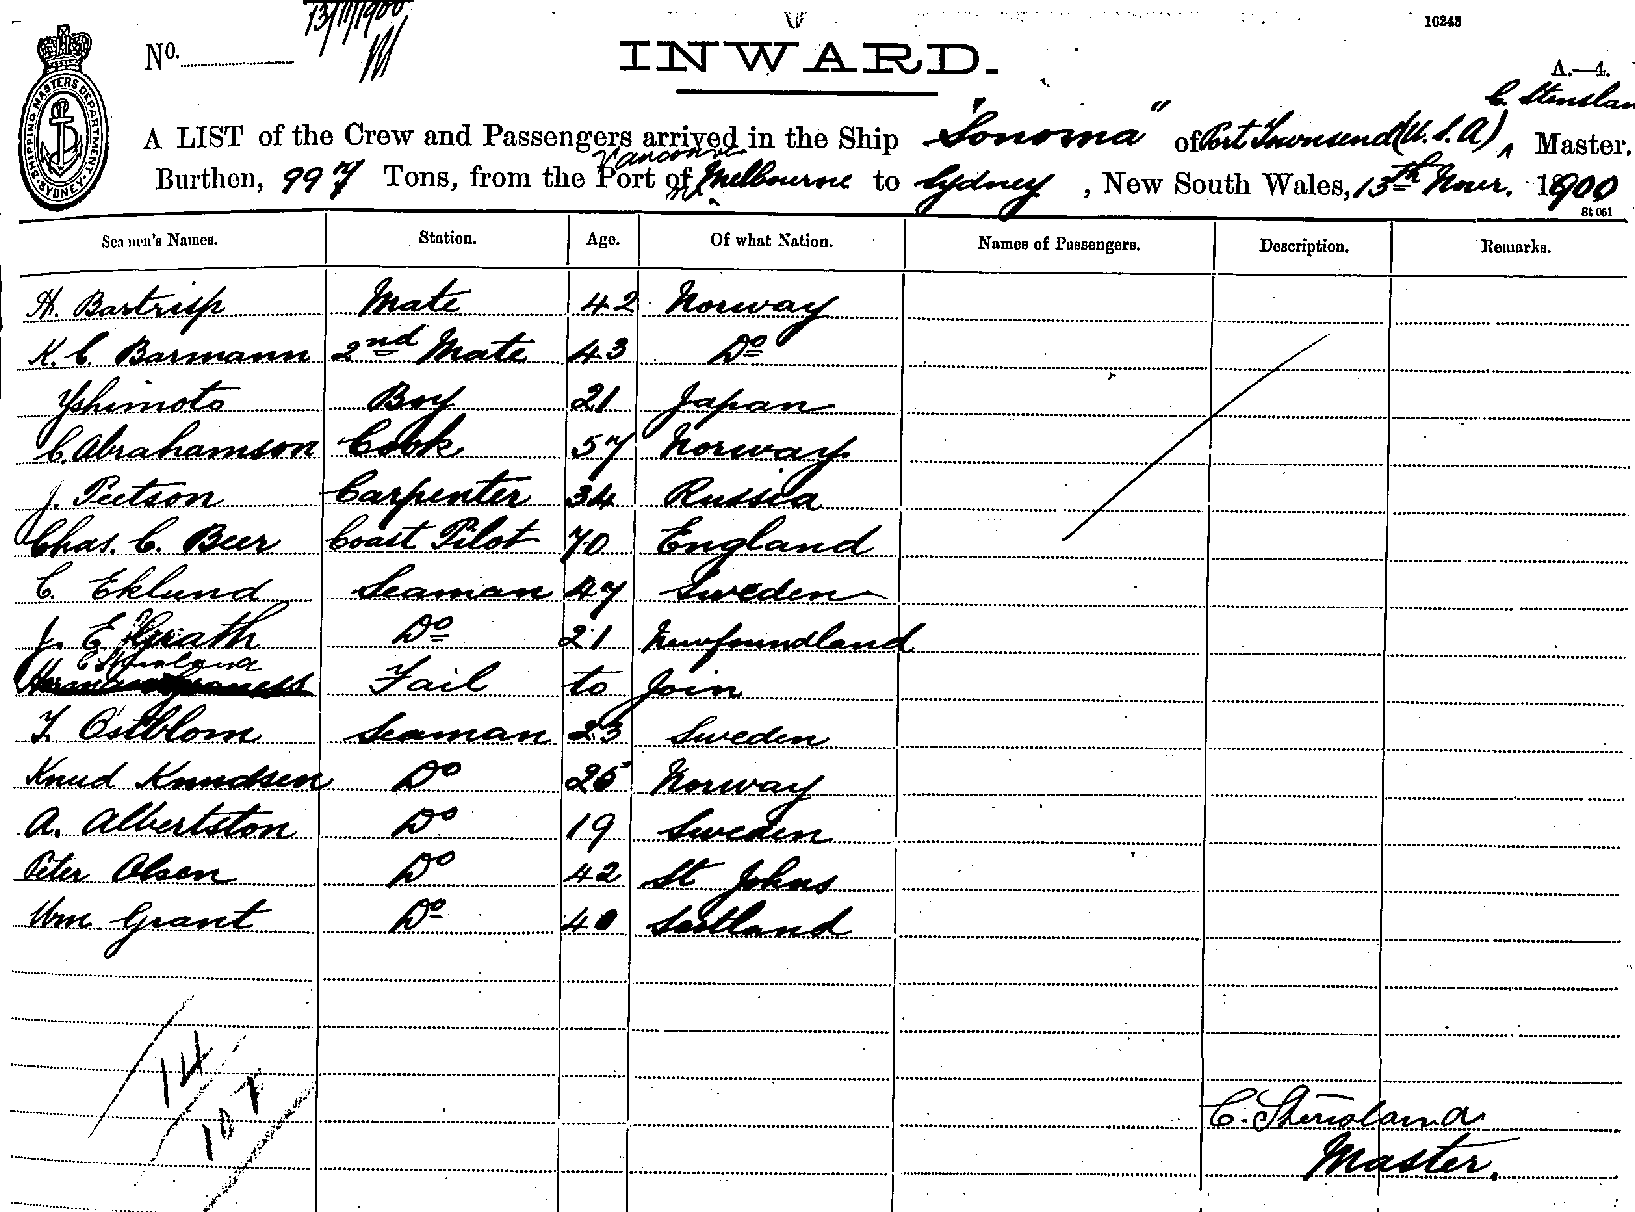 13/11/1900
10248
No.
INWARD.
A.—4.
SHIPPING MASTERS DEPARTMENT SYDNEY
C. Stensland
A LIST of the Crew and Passengers arrived in the Ship "Sonoma" of Port Townsend (U.S.A), Master.
Vancouver
Burthen, 997 Tons, from the Port of Melbourne to Sydney, New South Wales, 13th Novr. 1900
St 061
Seamen's Names. Station. Age. Of what Nation. Names of Passengers. Description. Remarks.
H. Bartrisp Mate 42 Norway
K. C. Barmann 2nd Mate 43 Do
Yshimoto Boy 21 Japan
C. Abrahamson Cook 57 Norway
J. Peetson Carpenter 34 Russia
Chas. C. Beer Coast Pilot 70 England
C. Eklund Seaman 47 Sweden
J. E. Grath Do 21 Newfoundland
Fail to Join
F. Ostblom Seaman 23 Sweden
Knud Knudsen Do 25 Norway
A. Albertston Do 19 Sweden
Peter Olsen Do 42 St Johns
Wm. Grant Do 40 Scotland
14
107
C. Stensland
Master.